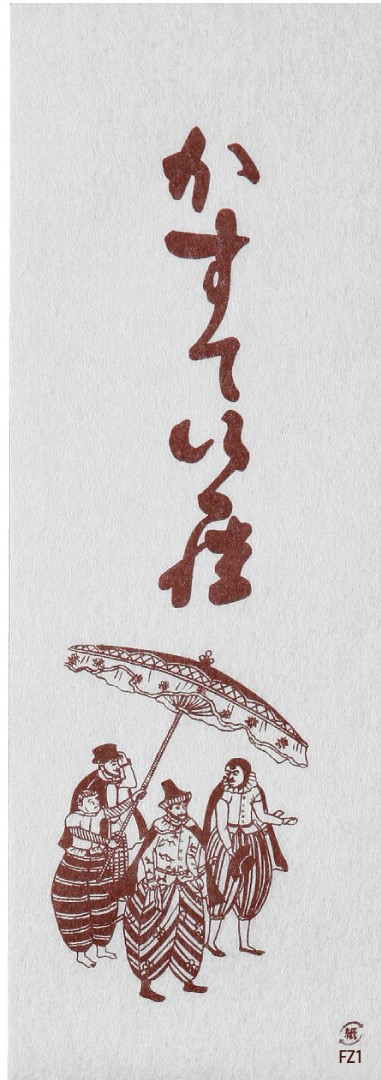 かすてい羅
紙
FZ1